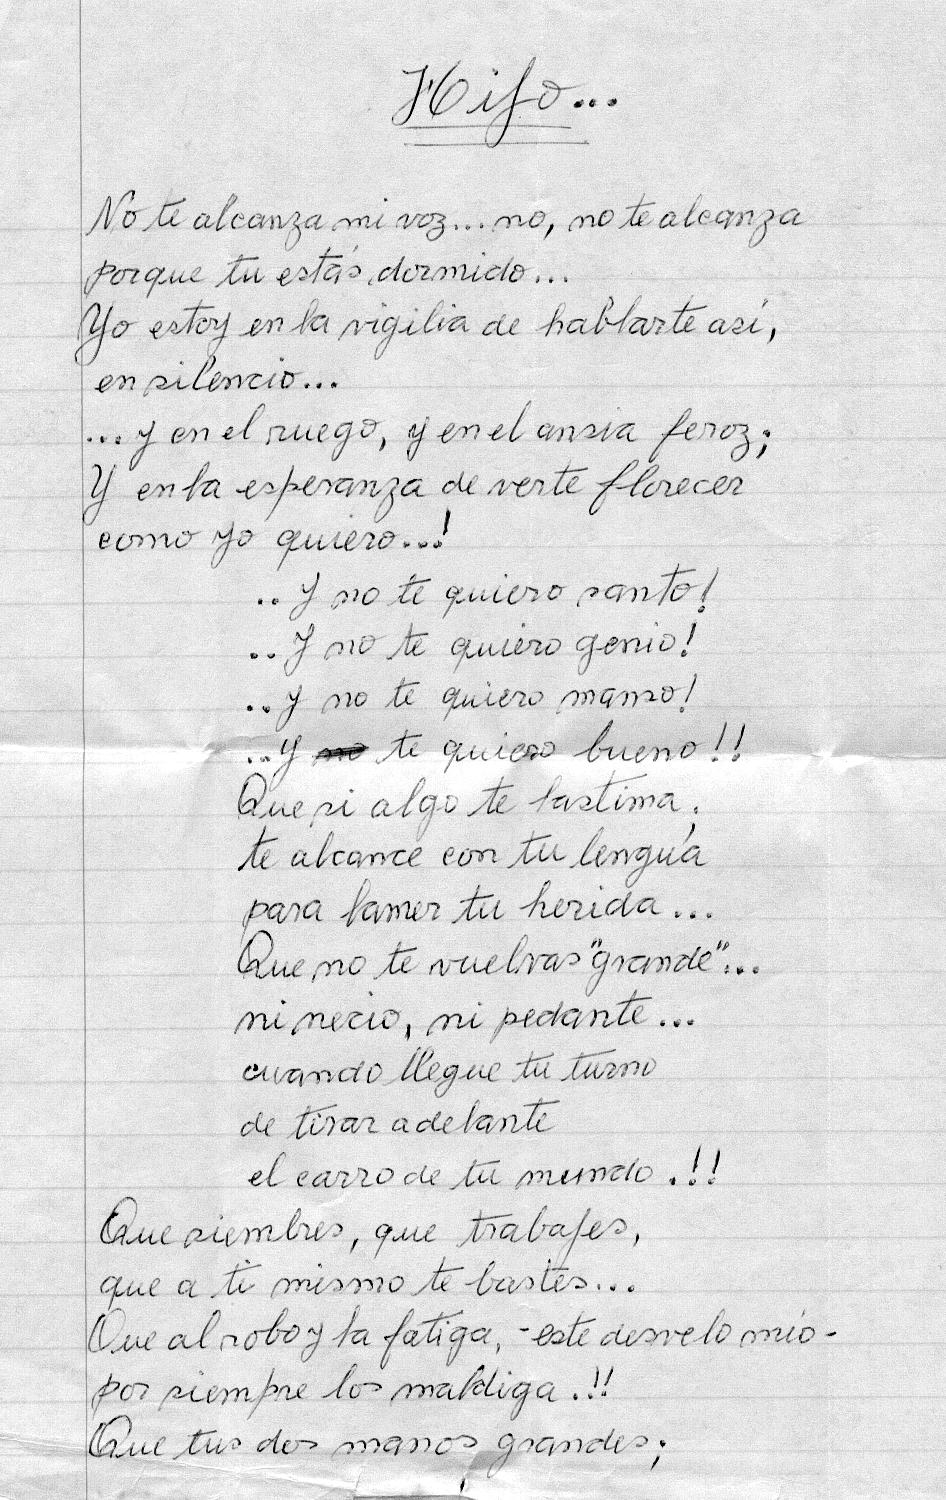 Hijo...
No te alcanza mi voz... no, no te alcanza
porque tu estás dormido...
Yo estoy en la vigilia de hablarte así,
en silencio...
... y en el ruego, y en el ansia feroz;
Y en la esperanza de verte florecer
como yo quiero...!
.. Y no te quiero santo!
.. Y no te quiero genio!
.. Y no te quiero manso!
.. Y te quiero bueno!!
Que si algo te lastima,
te alcance con tu lengua
para lamer tu herida...
Que no te vuelvas "grande"...
ni necio, ni pedante...
cuando llegue tu turno
de tirar adelante
el carro de tu mundo.!!
Que siembres, que trabajes,
que a ti mismo te bastes...
Que al robo y la fatiga, -este desvelo mío-
por siempre los maldiga.!!
Que tus dos manos grandes;